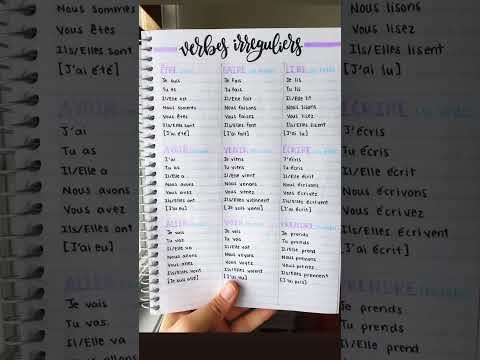 Nous sommes
Vous êtes
Ils/Elles sont
[J'ai été]
J'ai
Tu as
Il/Elle a
Nous avons
Vous avez
Ils/Elles ont
[J'ai eu]
Je vais
Tu vas
Il/Elle va
verbes irreguliers
ÊTRE
Je suis
Tu es
Il/Elle est
Nous sommes
Vous êtes
Ils/Elles sont
[J'ai été]
FAIRE
Je fais
Tu fais
Il/Elle fait
Nous faisons
Vous faites
Ils/Elles font
[J'ai fait]
LIRE
Je lis
Tu lis
Il/Elle lit
Nous lisons
Vous lisez
Ils/Elles lisent
[J'ai lu]
AVOIR
J'ai
Tu as
Il/Elle a
Nous avons
Vous avez
Ils/Elles ont
[J'ai eu]
VENIR
Je viens
Tu viens
Il/Elle vient
Nous venons
Vous venez
Ils/Elles viennent
[Je suis venu]
ÉCRIRE
J'écris
Tu écris
Il/Elle écrit
Nous écrivons
Vous écrivez
Ils/Elles écrivent
[J'ai écrit]
ALLER
Je vais
Tu vas
Il/Elle va
Nous allons
Vous allez
Ils/Elles vont
[Je suis allé]
VOIR
Je vois
Tu vois
Il/Elle voit
Nous voyons
Vous voyez
Ils/Elles voient
[J'ai vu]
PRENDRE
Je prends
Tu prends
Il/Elle prend
Nous prenons
Vous prenez
Ils/Elles prennent
[J'ai pris]
Nous lisons
Vous lisez
Ils/Elles lisent
[J'ai lu]
ÉCRIRE
J'écris
Tu écris
Il/Elle écrit
Nous écrivons
Vous écrivez
Ils/Elles écrivent
[J'ai écrit]
Je prends
Tu prends
Il/Elle prend